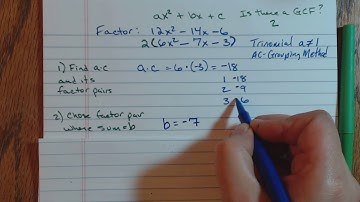 ax² + bx + c
Is there a GCF?
2
Factor: 12x² - 14x - 6
2(6x² - 7x - 3)
Trinomial a≠1
AC-Grouping Method
1) Find a·c
and its
factor pairs
a·c = 6·(-3) = -18
1 -18
2 -9
3 -6
2) Chose factor pair
where sum = b
b = -7